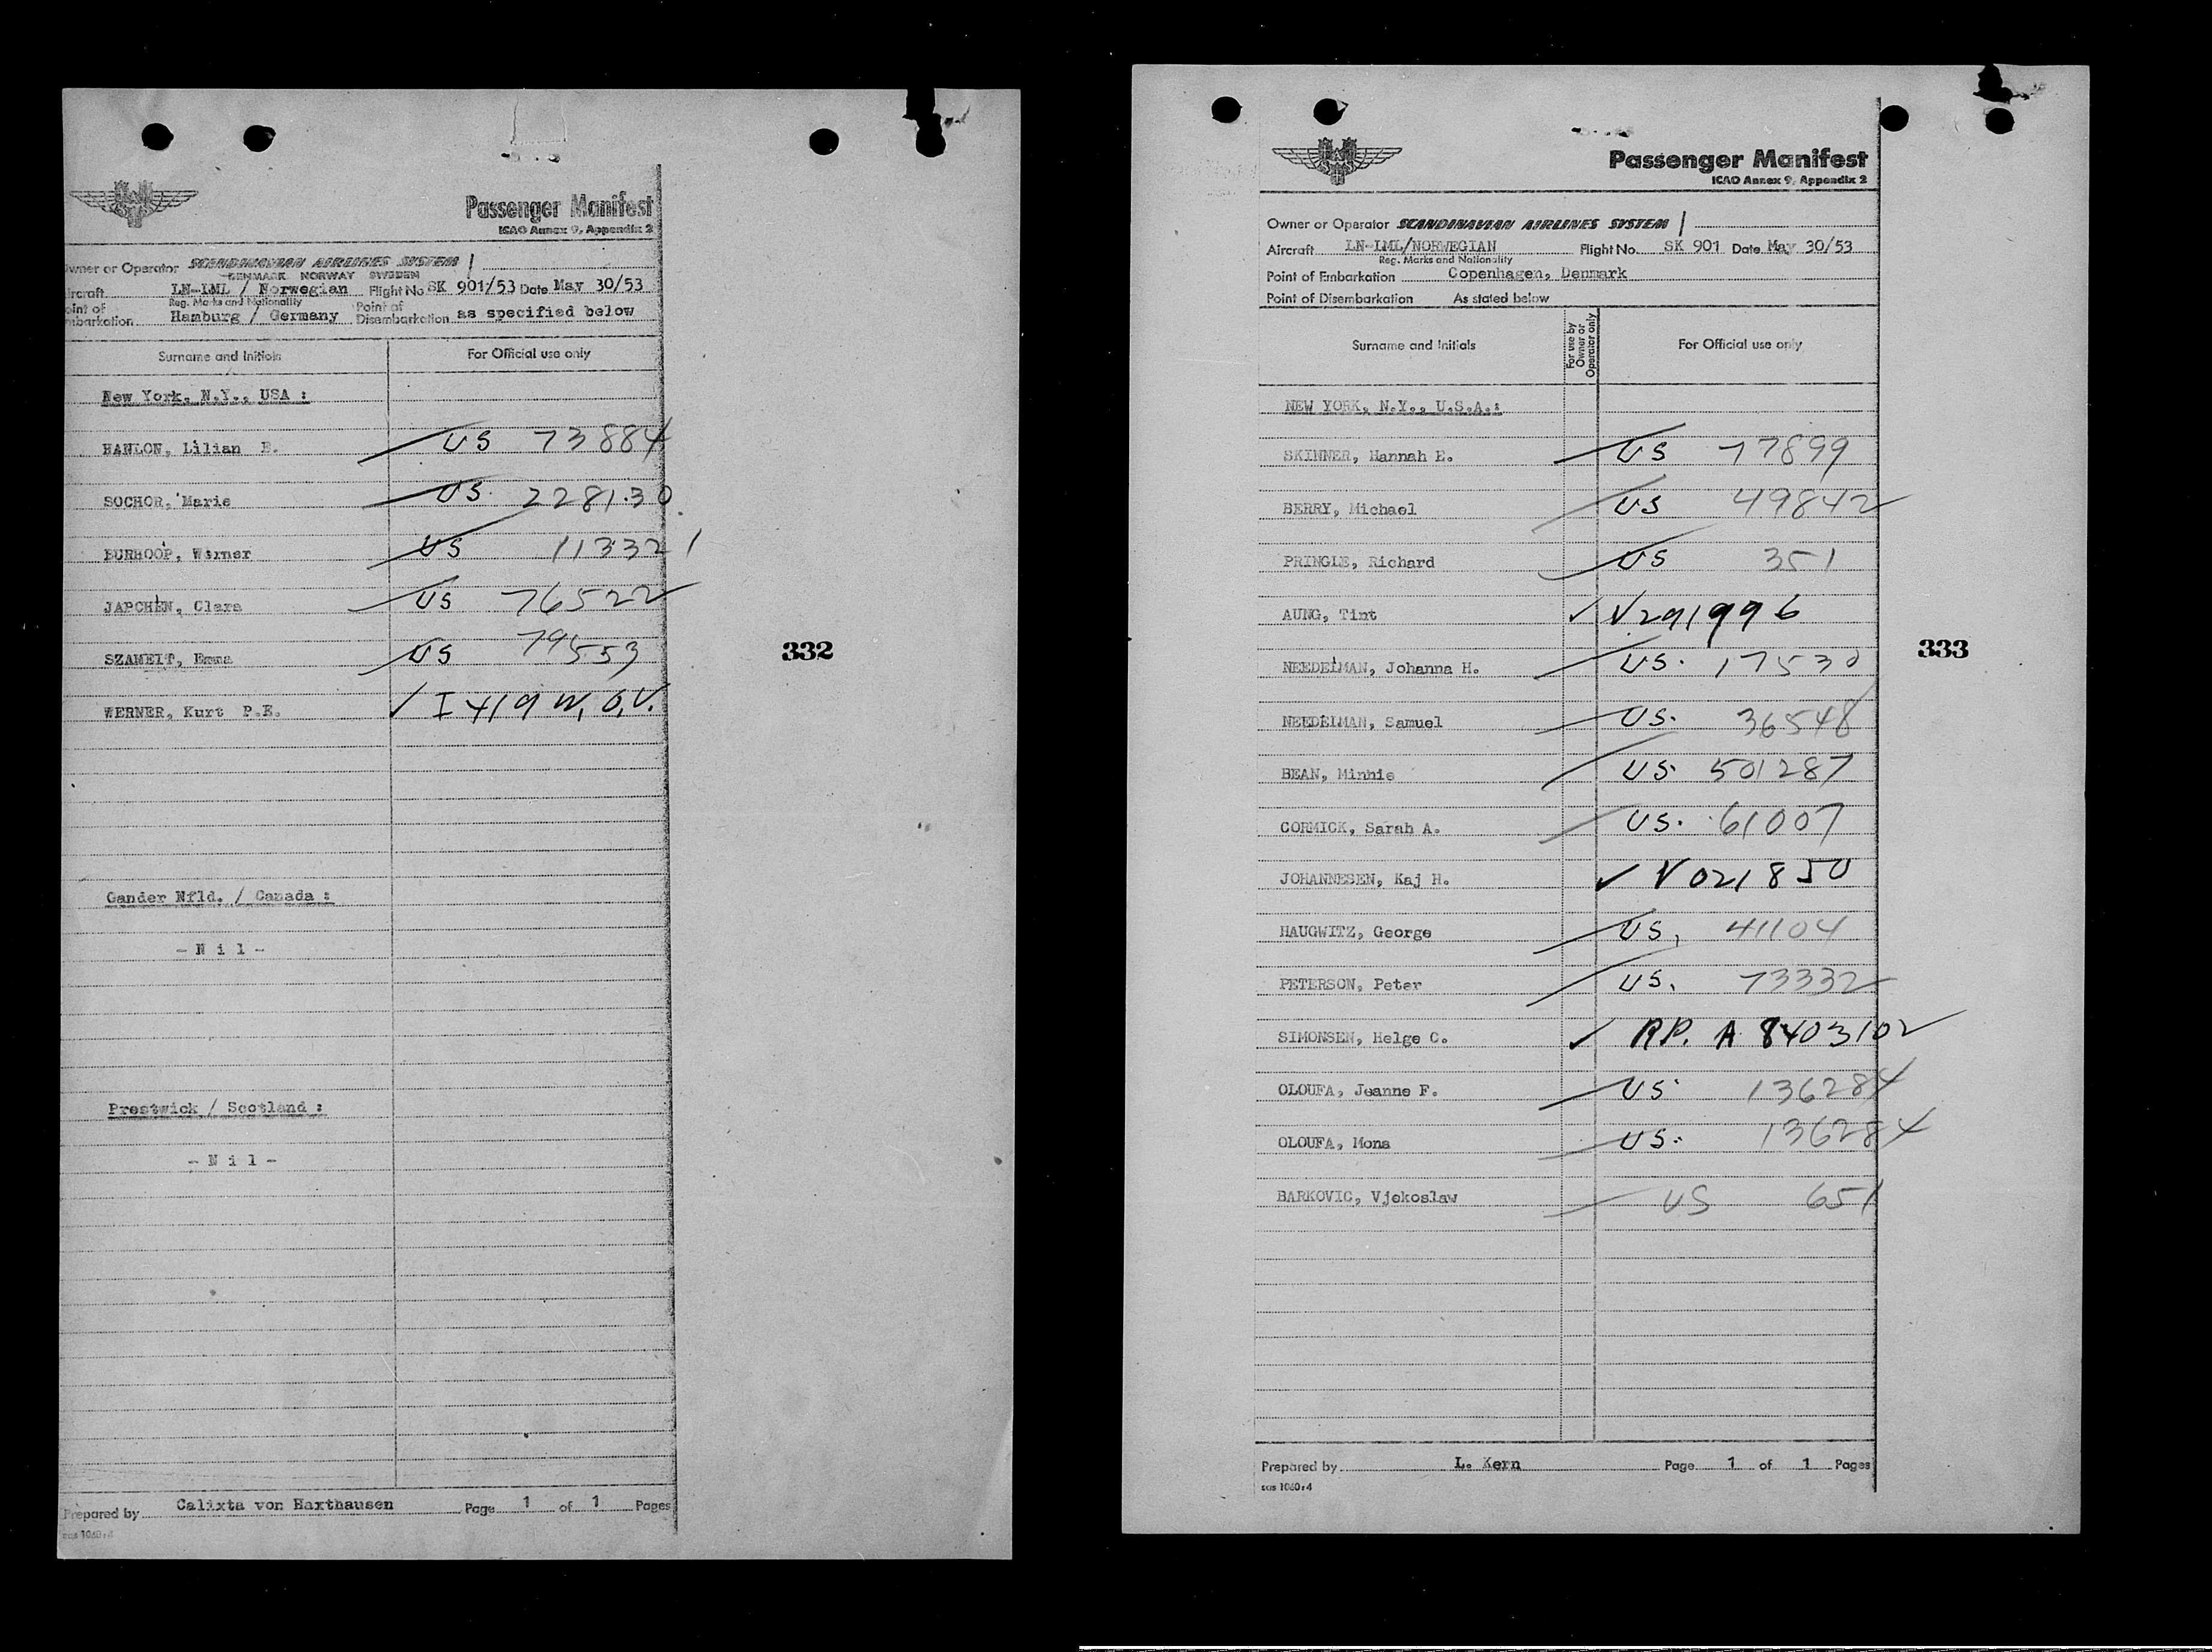 Passenger Manifest
ICAO Annex 9, Appendix 2
wner or Operator SCANDINAVIAN AIRLINES SYSTEM
DENMARK NORWAY SWEDEN
ircraft LN-LML / Norwegian Flight No SK 901/53 Date May 30/53
Reg. Marks and Nationality
oint of mbarkation Hamburg / Germany Point of Disembarkation as specified below
Surname and Initials For Official use only
New York, N.Y., USA :
HANLON, Lilian E. US 73884
SOCHOR, Marie US. 228130
BURHOOP, Werner US 113321
JAPCHEN, Clara US 76522
SZAMEIT, Emma US 79553
WERNER, Kurt P.E. I 419 W.O.V.
332
Gander Nfld. / Canada :
- N i l -
Prestwick / Scotland :
- N i l -
Prepared by Calixta von Haxthausen Page 1 of 1 Pages
sas 1060r4
Passenger Manifest
ICAO Annex 9, Appendix 2
Owner or Operator SCANDINAVIAN AIRLINES SYSTEM
Aircraft LN-LML/NORWEGIAN Flight No. SK 901 Date May 30/53
Reg. Marks and Nationality
Point of Embarkation Copenhagen, Denmark
Point of Disembarkation As stated below
Surname and Initials For use by Owner or Operator only For Official use only
NEW YORK, N.Y., U.S.A.:
SKINNER, Hannah E. US 77899
BERRY, Michael US 49842
PRINGLE, Richard US 351
AUNG, Tint V291996
NEEDELMAN, Johanna H. US. 17530
NEEDELMAN, Samuel US. 36548
BEAN, Minnie US. 501287
CORMICK, Sarah A. US. 61007
JOHANNESEN, Kaj H. V021850
HAUGWITZ, George US. 41104
PETERSON, Peter US. 73332
SIMONSEN, Helge C. RP. A 8403102
OLOUFA, Jeanne F. US. 136284
OLOUFA, Mona US. 136284
BARKOVIC, Vjekoslaw US 651
333
Prepared by L. Kern Page 1 of 1 Pages
sas 1060r4